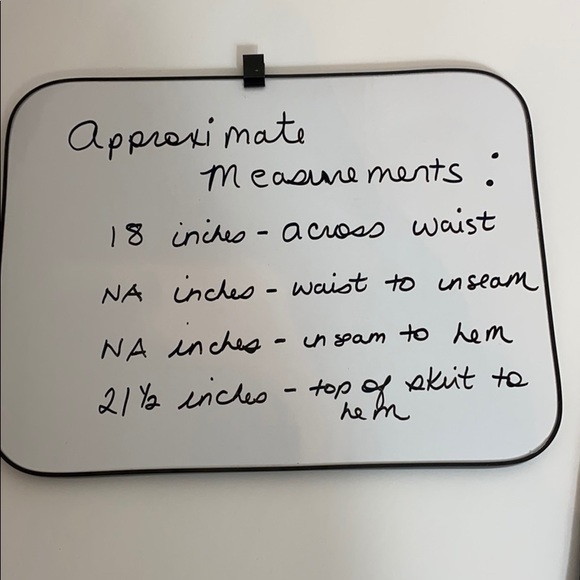 Approximate
Measurements :
18 inches - across waist
NA inches - waist to inseam
NA inches - inseam to hem
21 1/2 inches - top of skirt to
hem